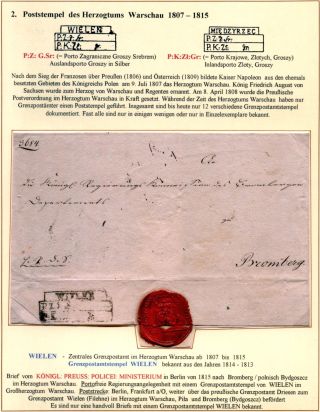 2. Poststempel des Herzogtums Warschau 1807 – 1815
WIELEN
P.Z. gr.
P.K.Zł. gr.
MIĘDZYRZEC
P.Z. gr.
P.K.Zł. gr.
P:Z: G.Sr: (= Porto Zagraniczne Groszy Srebrem)
Auslandsporto Groszy in Silber
P:K:Zł:Gr: (= Porto Krajowe, Złotych, Groszy)
Inlandsporto Zloty, Groszy
Nach dem Sieg der Franzosen über Preußen (1806) und Österreich (1809) bildene Kaiser Napoleon aus den ehemals
besetzten Gebieten des Königreichs Polen am 9. Juli 1807 das Herzogtum Warschau. König Friedrich August von
Sachsen wurde zum Herzog von Warschau und Regenten ernannt. Am 8. April 1808 wurde die Preußische
Postverordnung im Herzogtum Warschau in Kraft gesetzt. Während der Zeit des Herzogtums Warschau haben nur
Grenzpostämter einen Poststempel geführt. Insgesamt sind bis heute nur 12 verschiedene Grenzpostamtstempel
dokumentiert. Fast alle sind nur in einigen wenigen oder nur in Einzelexemplare bekannt.
3684
An
die Königl. Regierungs Kommission des
Departements
zu
Bromberg
WIELEN
WIELEN - Zentrales Grenzpostamt im Herzogtum Warschau ab 1807 bis 1815
Grenzpostamtstempel WIELEN bekannt aus den Jahren 1814 - 1813
Brief vom KÖNIGL. PREUSS. POLICEI MINISTERIUM in Berlin vom 1815 nach Bromberg / polnisch Bydgoszcz
im Herzogtum Warschau. Portofreie Regierungsangelegenheit mit einem Grenzpostamtstempel von WIELEN im
Großherzogtum Warschau. Poststrecke: Berlin, Frankfurt a/O, weiter über das preußische Grenzpostamt Driesen zum
Grenzpostamt Wielen (Filehne) im Herzogtum Warschau, Pila und Bromberg (Bydgoszcz) befördert
Es sind nur eine handvoll Briefe mit einem WIELEN Grenzpostamtstempel bekannt.